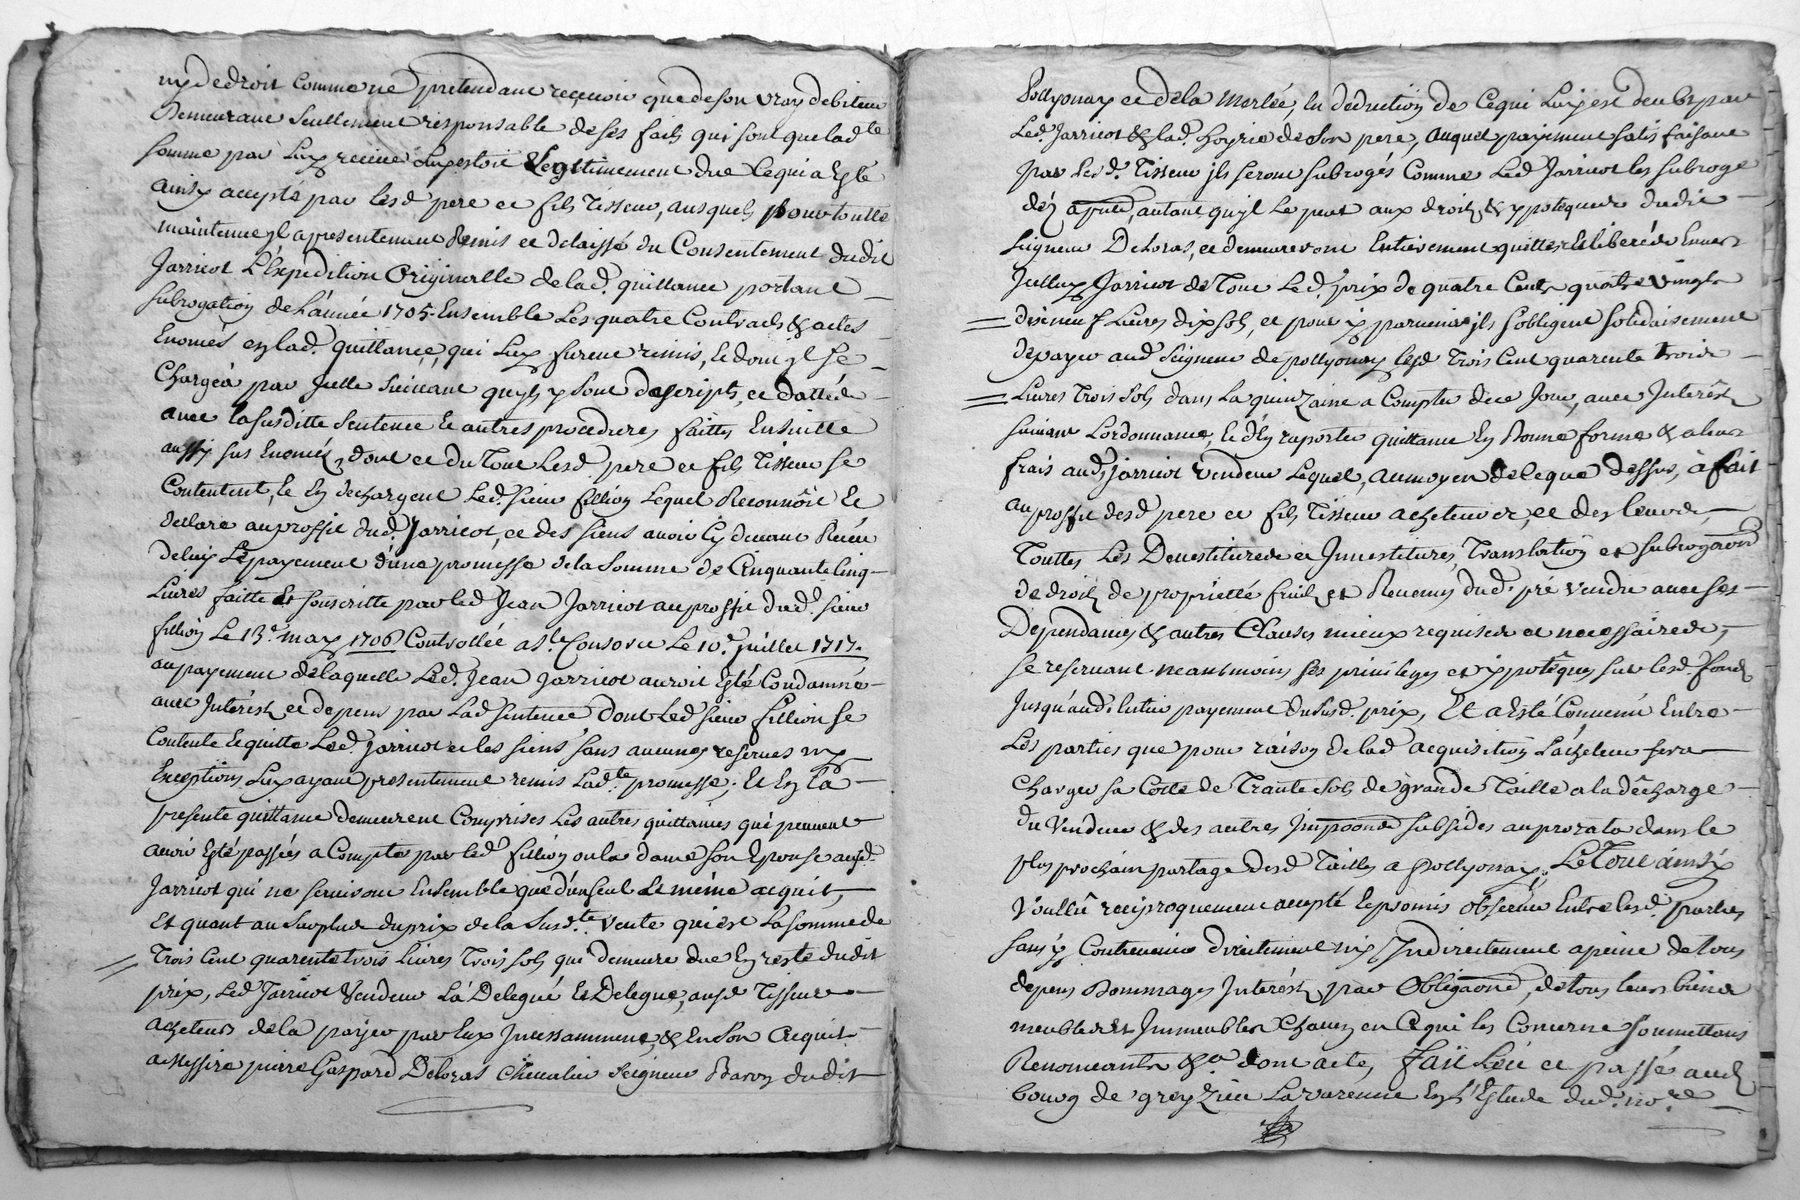 ny de droit comme ne pretendant recevoir que de son vray debiteur
Demeurant seullement responsable de ses faits qui sont que lad.te
somme par luy receue luy estoit Legitimement due Ce qui a esté
ainsy accepté par lesd pere et fils Tisseur, ausquels pour toutte
maintenue yl a presentement Remis et delaissé du Consentement dudit
Jarricot L'Expedition Originalle de lad. quittance portant
subrogation de l'année 1705. Ensemble Les quatre Contracts & actes
Enoncés en lad. quittance, qui luy furent remis, et dont yl se
Chargea par Jcelle suivant quyls y sont descripts, et dattés
avec la susditte sentence et autres procedures faittes Ensuitte
aussy sus Enoncés, dont et du Tout Lesd. pere et fils Tisseur se
Contentent, et En dechargent Led. sieur fillion Lequel Reconnoit et
declare au proffit dud. Jarricot, et des siens avoir Cy devant Receu
de luy Le payement d'une promesse de la somme de Cinquante Cinq
Livres faitte et souscritte par led Jean Jarricot au proffit dud. sieur
fillion Le 13.e may 1706 Controllée a St. Consorce Le 10.e juillet 1717.
au payement de laquelle Led. Jean Jarricot auroit Esté Condamné
avec Jnterests et depens par Lad sentence Dont Led sieur fillion se
Contente Et quitte Led. Jarricot et les siens sans aucunes reserves ny
Exceptions, Luy ayant presentement remis Lad.te promesse; Et En la
presente quittance demeurent Comprises Les autres quittances qui peuvent
avoir Esté passées a Compte par led fillion ou la dame son Epouse aud.
Jarricot qui ne serviront Ensemble que d'un seul et même acquit,
Et quant au Surplus du prix de la Susd.te Vente qui est La somme de
Trois Cent quarente trois Livres Trois sols qui demeure due En reste dudit
prix, Led Jarricot Vendeur L'a Delegué Et Delegue, ausd Tisseur
Acheteurs de la payer par Eux Jncessamment, & En son Acquit
a Messire pierre Gaspard Deloras Chevalier Seigneur Baron dudit
Pollyonay et de la Merlée, En deduction de Ce qui Luy est deub par
Led. Jarricot & lad. hoyrie de son pere, Auquel payement satisfaisant
par Lesd. Tisseur jls seront subrogés Comme Led Jarricot les subroge
dés a pnt, autant qu'yl Le peut aux droits & ypoteques dudit
Seigneur Deloras, et demeureront Entierement quittes Et liberés Envers
Jcelluy Jarricot de Tout Led. prix de quatre Cents quatre vingts
dix neuf Livres dix sols, et pour y parvenir jls s'obligent solidairement
de payer aud. Seigneur de pollyonay lesd trois Cent quarente trois
Livres Trois sols dans La quinzaine a Compter de ce Jour, avec Jnterests
suivant L'ordonnance, et d'En raporter quittance En Bonne forme & a leurs
frais aud. Jarricot Vendeur Lequel, au moyen de ce que dessus, à fait
au proffit desd pere et fils Tisseur acheteurs, et des leurs,
Touttes Les Devestitures et Jnvestitures, Translation et subrogaons
de droits de proprietté fruits et Revenus dud. pré Vendu avec ses
Dependances, & autres Clauses mieux requises et necessaires,
se reservant neantmoins ses privileges et ypotêques, sur lesd. fonds
Jusqu'aud. Entier payement du susd. prix, Et a Esté Convenu Entre
Les parties que pour raison de lad acquisition L'acheteur fera
Charger sa Cotte de Trante sols de grande Taille a la décharge
du Vendeur & des autres Jmpoons subsides au prorata dans le
plus prochain partage desd Tailles a Pollyonay; Le Tout ainsy
Voullu reciproquement accepté Et promis observer Entre lesd. parties
sans y Contrevenir directement ny Jndirectement a peine de tous
depens Dommages Jnterests, par Obligaons, de tous leurs biens
meubles Et Jmmeubles Chacun en Ce qui les Concerne Soumettons
Renonceants &a. dont acte, Fait Leu et passé aud
bourg de greyzieu Lavarenne En L'Estude dud. no.re